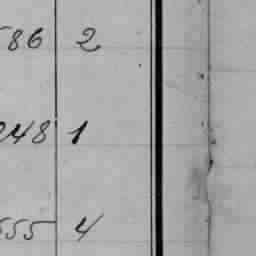 586 2
248 1
555 4